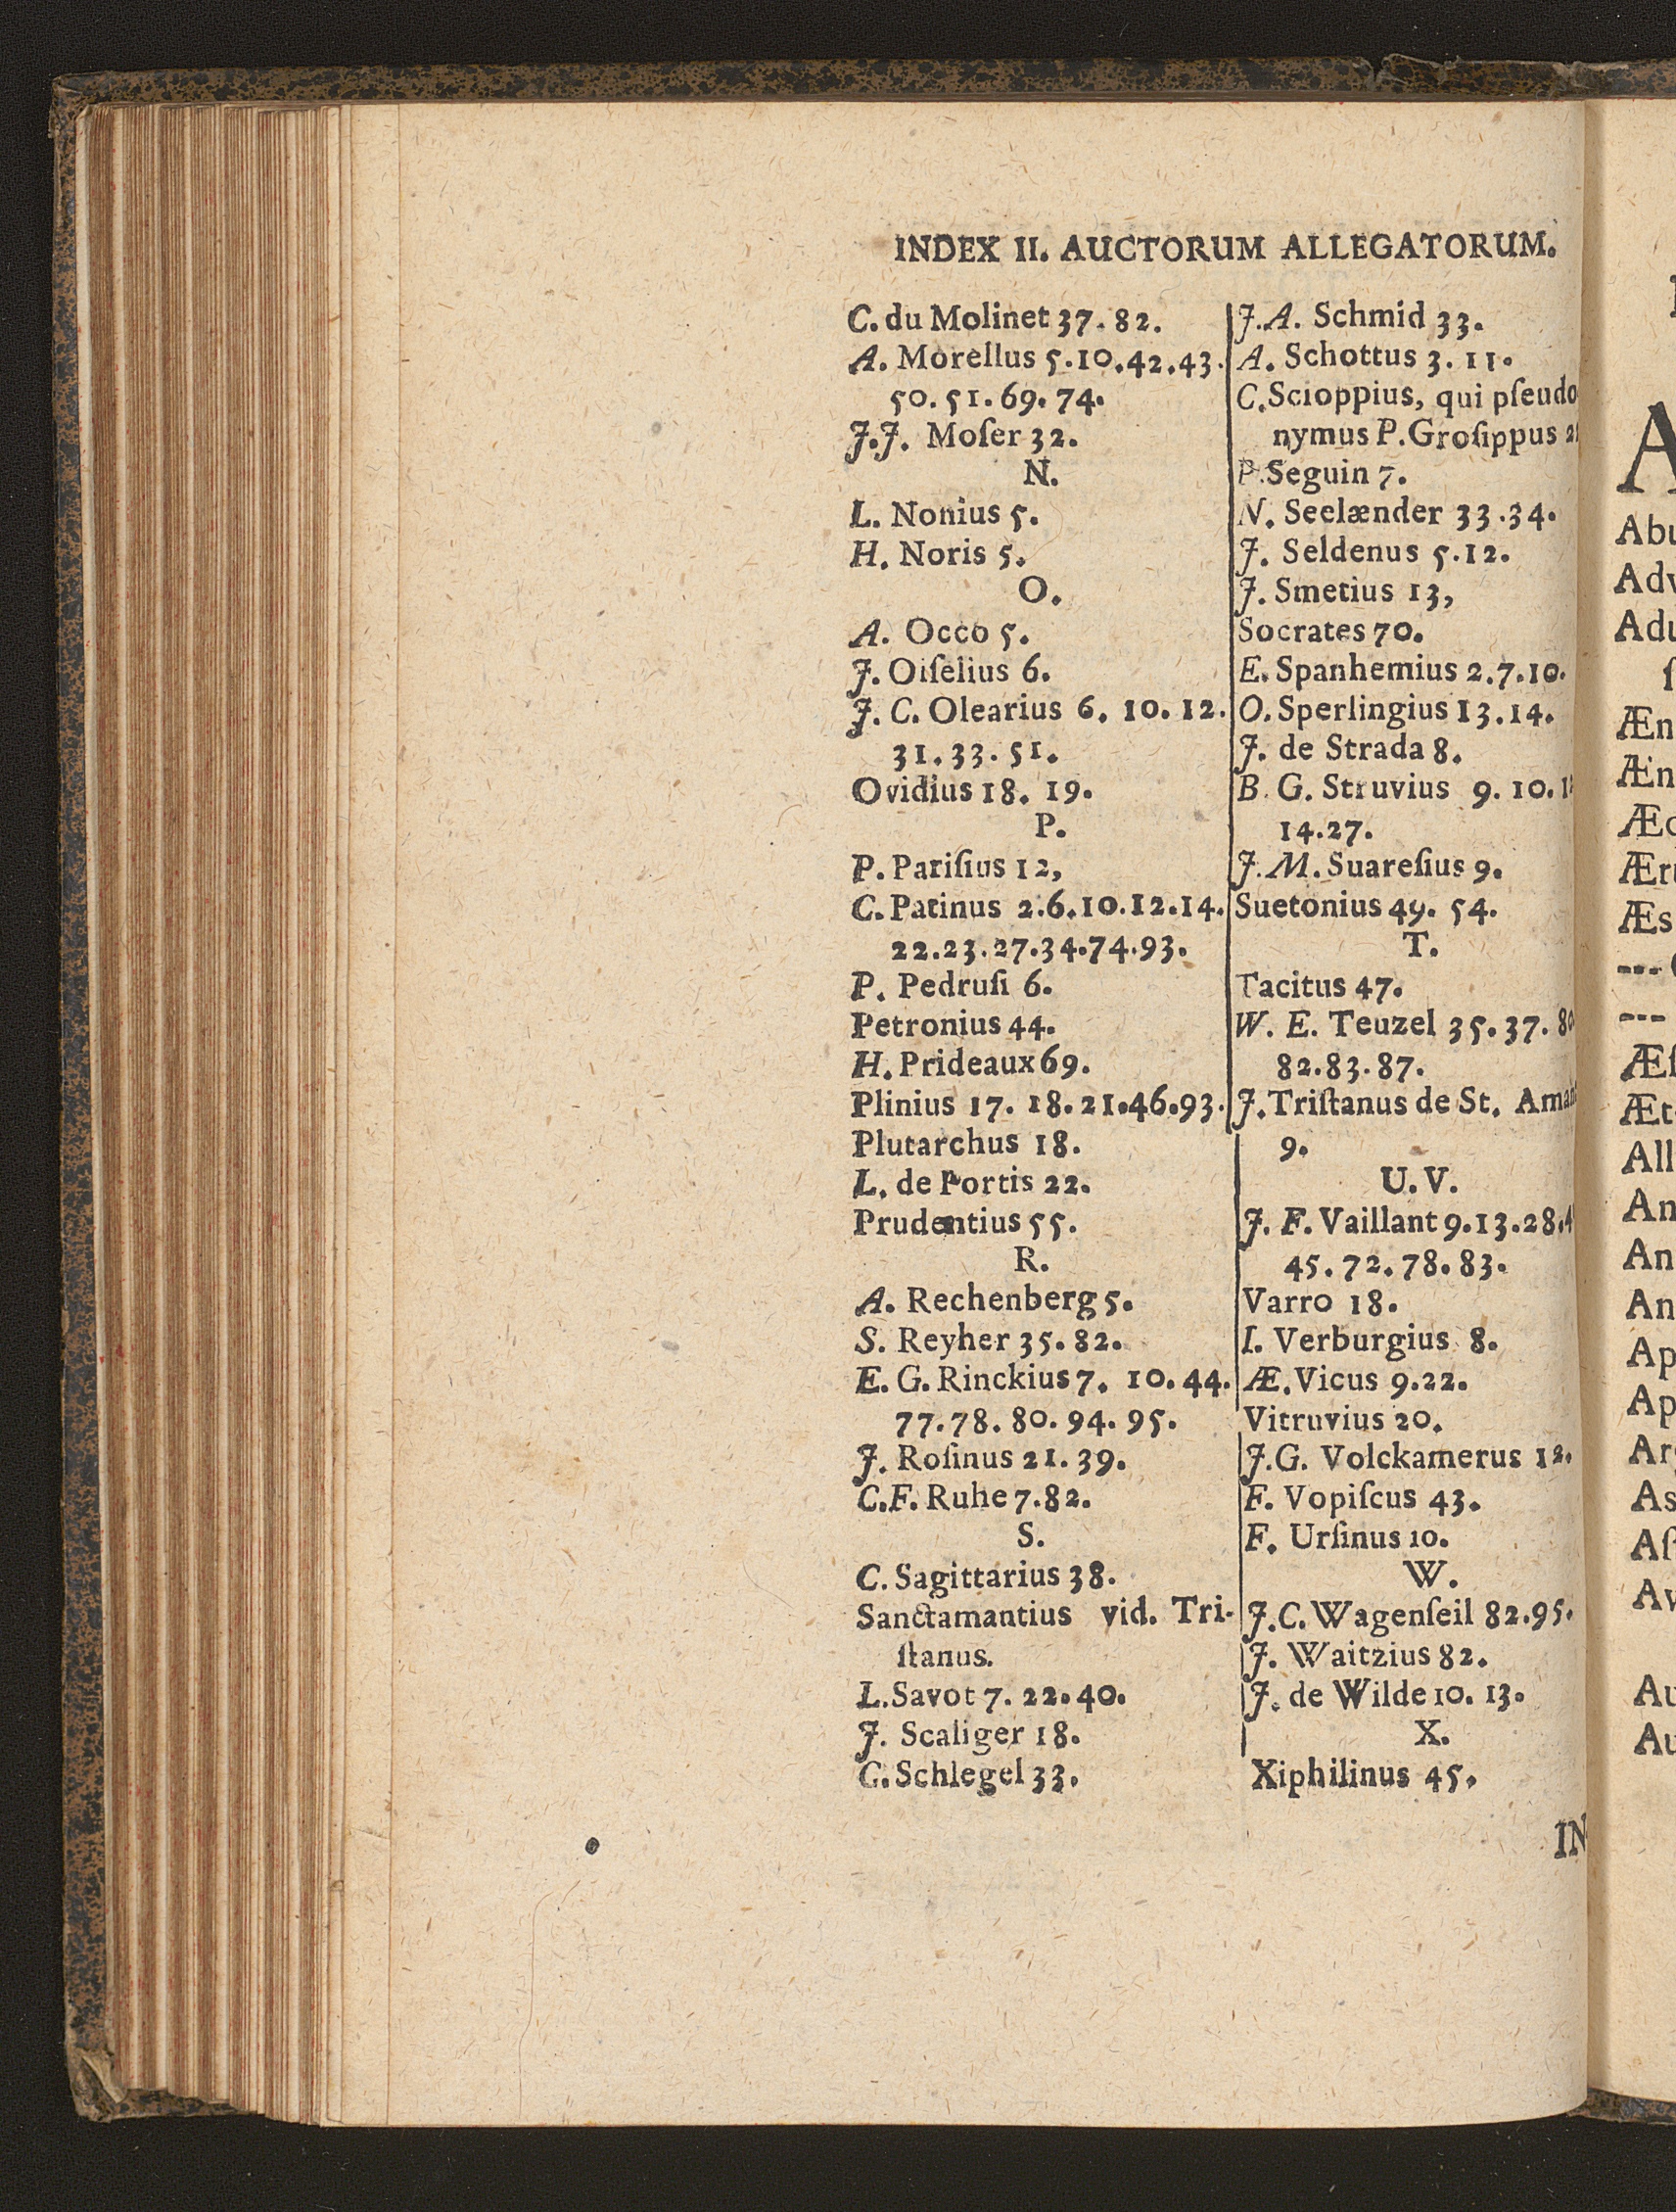 INDEX II. AUCTORUM ALLEGATORUM.
C. du Molinet 37. 82.
A. Morellus 5.10.42.43.
50. 51. 69. 74.
J.J. Moſer 32.
N.
L. Nonius 5.
H. Noris 5.
O.
A. Occo 5.
J. Oiſelius 6.
J. C. Olearius 6. 10. 12.
31. 33. 51.
Ovidius 18. 19.
P.
P. Pariſius 12,
C. Patinus 2.6.10.12.14.
22.23.27.34.74.93.
P. Pedruſi 6.
Petronius 44.
H. Prideaux 69.
Plinius 17. 18. 21.46.93.
Plutarchus 18.
L. de Portis 22.
Prudentius 55.
R.
A. Rechenberg 5.
S. Reyher 35. 82.
E. G. Rinckius 7. 10. 44.
77. 78. 80. 94. 95.
J. Roſinus 21. 39.
C.F. Ruhe 7.82.
S.
C. Sagittarius 38.
Sanctamantius vid. Tri-
ſtanus.
L. Savot 7. 22. 40.
J. Scaliger 18.
C. Schlegel 33.
J.A. Schmid 33.
A. Schottus 3. 11.
C. Scioppius, qui pſeudo
nymus P. Groſippus
P. Seguin 7.
N. Seelænder 33.34.
J. Seldenus 5.12.
J. Smetius 13,
Socrates 70.
E. Spanhemius 2.7.10.
O. Sperlingius 13.14.
J. de Strada 8.
B. G. Struvius 9. 10.
14.27.
J. M. Suareſius 9.
Suetonius 49. 54.
T.
Tacitus 47.
W. E. Teuzel 35. 37.
82.83.87.
J. Triſtanus de St.
9.
U. V.
J. F. Vaillant 9.13.28.
45. 72. 78. 83.
Varro 18.
I. Verburgius 8.
Æ. Vicus 9.22.
Vitruvius 20.
J.G. Volckamerus 12.
F. Vopiſcus 43.
F. Urſinus 10.
W.
J.C. Wagenſeil 82.95.
J. Waitzius 82.
J. de Wilde 10. 13.
X.
Xiphilinus 45.
IN